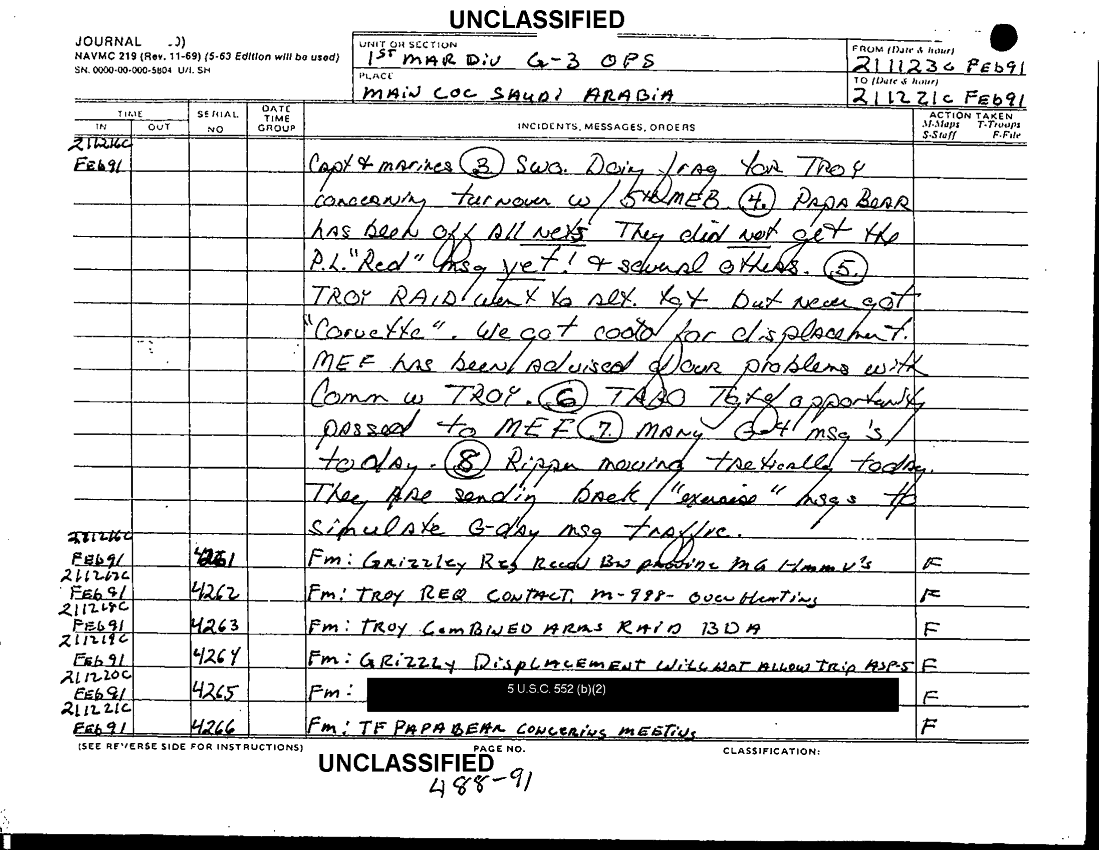 UNCLASSIFIED
JOURNAL
NAVMC 219 (Rev. 11-69) (5-63 Edition will be used)
SN. 0000-00-000-5804 U/I. SH
UNIT OR SECTION
1ST MAR DIV G-3 OPS
PLACE
MAIN COC SAUDI ARABIA
FROM (Date & hour)
211123C FEB91
TO (Date & hour)
211221C FEB91
TIME
IN OUT
SERIAL NO
DATE TIME GROUP
INCIDENTS, MESSAGES, ORDERS
ACTION TAKEN
M-Maps T-Troops
S-Staff F-File
211216C
FEB91 Capt 4 marines (3) SWA. Doing frag for TROY
concerning turnover w/ 5th MEB. (4.) PAPA BEAR
has been off all nets They did not get the
P.L. "Red" msg yet! & several others. (5.)
TROY RAID went to alt. tgt but never got
"Corvette". We got coord for displacement.
MEF has been advised of our problems with
Comm w TROY. (6) Tgt of opportunity
passed to MEF (7.) MANY G-4 msg's
today. (8) Ripper moving tactically today.
They are sendin back "exercise" msgs to
simulate G-day msg traffic.
211216C
FEB91 4261 Fm: GRIZZLEY Req Recon Bn provide MG Hmmv's F
211217C
FEB91 4262 Fm: TROY REQ CONTACT. M-998- overheating F
211218C
FEB91 4263 Fm: TROY COMBINED ARMS RAID BDA F
211219C
FEB91 4264 Fm: GRIZZLY DISPLACEMENT WILL NOT ALLOW TRIP ASP-5 F
211220C
FEB91 4265 Fm: 5 U.S.C. 552 (b)(2) F
211221C
FEB91 4266 Fm: TF PAPA BEAR CONCERING MEETING F
(SEE REVERSE SIDE FOR INSTRUCTIONS) PAGE NO. CLASSIFICATION:
UNCLASSIFIED
488-91